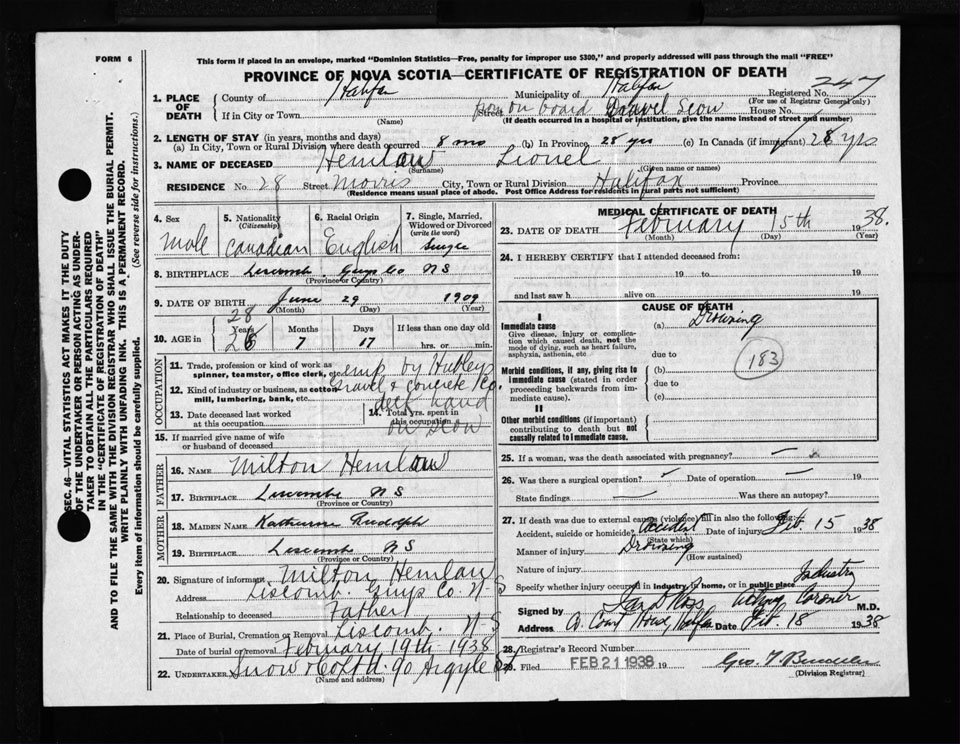 FORM 6
This form if placed in an envelope, marked "Dominion Statistics—Free, penalty for improper use $300," and properly addressed will pass through the mail "FREE"
PROVINCE OF NOVA SCOTIA—CERTIFICATE OF REGISTRATION OF DEATH
SEC. 46—VITAL STATISTICS ACT MAKES IT THE DUTY
OF THE UNDERTAKER OR PERSON ACTING AS UNDER-
TAKER TO OBTAIN ALL THE PARTICULARS REQUIRED
IN THE "CERTIFICATE OF REGISTRATION OF DEATH"
AND TO FILE THE SAME WITH THE DIVISION REGISTRAR WHO SHALL ISSUE THE BURIAL PERMIT.
WRITE PLAINLY WITH UNFADING INK. THIS IS A PERMANENT RECORD.
Every item of information should be carefully supplied. (See reverse side for instructions.)
1. PLACE OF DEATH
County of Halifax Municipality of Halifax Registered No. 247
(For use of Registrar General only)
If in City or Town (Name) Street on board Gravel Scow House No.
(If death occurred in a hospital or institution, give the name instead of street and number)
2. LENGTH OF STAY (in years, months and days)
(a) In City, Town or Rural Division where death occurred 8 mo (b) In Province 28 yrs (c) In Canada (if immigrant) 28 yrs
3. NAME OF DECEASED Hemlow Lionel
(Surname) (Given name or names)
RESIDENCE No. 28 Street Morris City, Town or Rural Division Halifax Province
(Residence means usual place of abode. Post Office Address for residents in rural parts not sufficient)
4. Sex Male
5. Nationality (Citizenship) Canadian
6. Racial Origin English
7. Single, Married, Widowed or Divorced (write the word) Single
8. BIRTHPLACE Liscomb Guys Co NS
(Province or Country)
9. DATE OF BIRTH June 29 1909
(Month) (Day) (Year)
10. AGE in 28 Years 7 Months 17 Days If less than one day old
hrs. or min.
OCCUPATION
11. Trade, profession or kind of work as spinner, teamster, office clerk, etc. emp by Hubley
12. Kind of industry or business, as cotton mill, lumbering, bank, etc. Gravel & concrete Co.
deck hand
13. Date deceased last worked at this occupation
14. Total yrs. spent in this occupation on scow
15. If married give name of wife or husband of deceased
FATHER
16. NAME Milton Hemlow
17. BIRTHPLACE Liscombe NS
(Province or Country)
MOTHER
18. MAIDEN NAME Katherine Rudolph
19. BIRTHPLACE Liscombe NS
(Province or Country)
20. Signature of informant Milton Hemlow
Address Liscomb. Guys Co. N-S
Relationship to deceased Father
21. Place of Burial, Cremation or Removal Liscomb. N-S
Date of burial or removal February 19th 1938
22. UNDERTAKER Snow & Co Ltd. 90 Argyle St
(Name and address)
MEDICAL CERTIFICATE OF DEATH
23. DATE OF DEATH February 15th 1938.
(Month) (Day) (Year)
24. I HEREBY CERTIFY that I attended deceased from:
19 to 19
and last saw h alive on 19
CAUSE OF DEATH
I
Immediate cause (a) Drowning
Give disease, injury or complication which caused death, not the mode of dying, such as heart failure, asphyxia, asthenia, etc
due to
183
Morbid conditions, if any, giving rise to immediate cause (stated in order proceeding backwards from immediate cause).
(b)
due to
(c)
II
Other morbid conditions (if important) contributing to death but not causally related to immediate cause.
25. If a woman, was the death associated with pregnancy? —
26. Was there a surgical operation? Date of operation 19
State findings — Was there an autopsy?
27. If death was due to external causes (violence) fill in also the following:
Accident, suicide or homicide? Accident Date of injury Feb. 15 1938
(State which)
Manner of injury Drowning
(How sustained)
Nature of injury
Specify whether injury occurred in industry, in home, or in public place Industry
Signed by Acting Coroner M.D.
Address Court House, Halifax Date Feb. 18 1938
28. Registrar's Record Number
29. Filed FEB 21 1938 19
(Division Registrar)